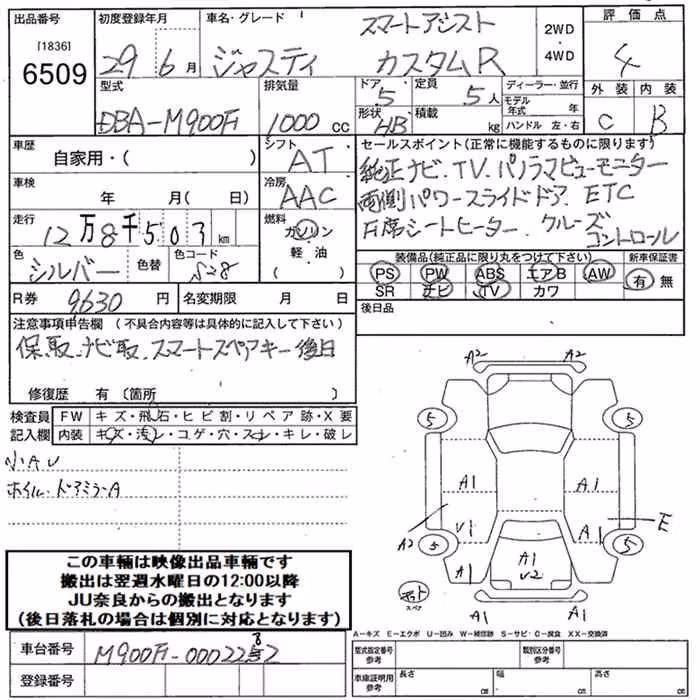 出品番号
[1836]
6509
初度登録年月
29 6 月
車名・グレード
スマートアシスト
ジャスティ カスタムR
2WD
・
4WD
評価点
4
外装 内装
C B
型式
DBA-M900F
排気量
1000 cc
ドア 5
定員 5 人
形状 HB
積載 kg
ディーラー・並行
モデル年式 年
ハンドル 左・右
車歴
自家用・( )
シフト
AT
車検
年 月( 日)
冷房
AAC
走行
12万8千503 km
燃料
ガソリン
軽・油
( )
色
シルバー
色替
色コード
S28
R券 9630 円
名変期限 月 日
セールスポイント(正常に機能するものに限ります)
純正ナビ.TV.パノラマビューモニター
両側パワースライドドア. ETC
F席シートヒーター. クルーズ
コントロール
装備品(純正品に限り丸をつけて下さい)
PS PW ABS エアB AW
SR ナビ TV カワ
新車保証書
有 無
後日品
注意事項申告欄 (不具合内容等は具体的に記入して下さい)
保、取、ナビ取、スマートスペアキー後日
修復歴 有 〔箇所 〕
検査員
記入欄
FW キズ・飛石・ヒビ割・リペア跡・X要
内装 キズ・汚レ・コゲ・穴・スレ・キレ・破レ
小AU
ホイル.ドアミラーA
この車輌は映像出品車輌です
搬出は翌週水曜日の12:00以降
JU奈良からの搬出となります
(後日落札の場合は個別に対応となります)
車台番号
登録番号
A2 A2
5 5
A1 A1
A2 V1 A1 E
5 5
A1 A1
V2
A1 A1
スペア
A-キズ E-エクボ U-凹み W-補修跡 S-サビ・C-腐食 XX-交換済
型式指定番号
参考
類別区分番号
参考
車庫証明用
参考
長さ cm
幅 cm
高さ cm